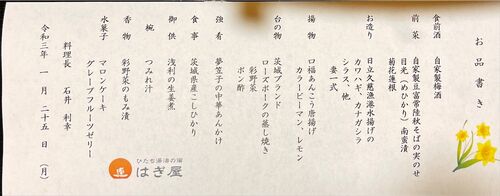 お品書き
食前酒 自家製梅酒
前菜 自家製豆富常陸秋そばの実のせ
目光(めひかり)南蛮漬
菊花蓮根
お造り 日立久慈漁港水揚げの
カワハギ、カナガシラ
シラス、他
妻一式
揚物 口福あんこう唐揚げ
カラーピーマン、レモン
台の物 茨城ブランド
ローズポークの蒸し焼き
彩野菜
ポン酢
強肴 夢笠子の中華あんかけ
食事 茨城県産こしひかり
御供 浅利の生姜煮
椀 つみれ汁
香物 彩野菜のもみ漬
水菓子 マロンケーキ
グレープフルーツゼリー
料理長 石井 利幸
令和三年 一月 二十五日 (月)
ひたち湯海の宿
はぎ屋